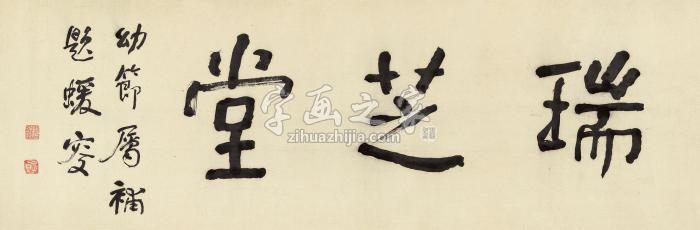 瑞芝堂
幼節属補
題蝯叟
字画之家
zihuazhijia.com